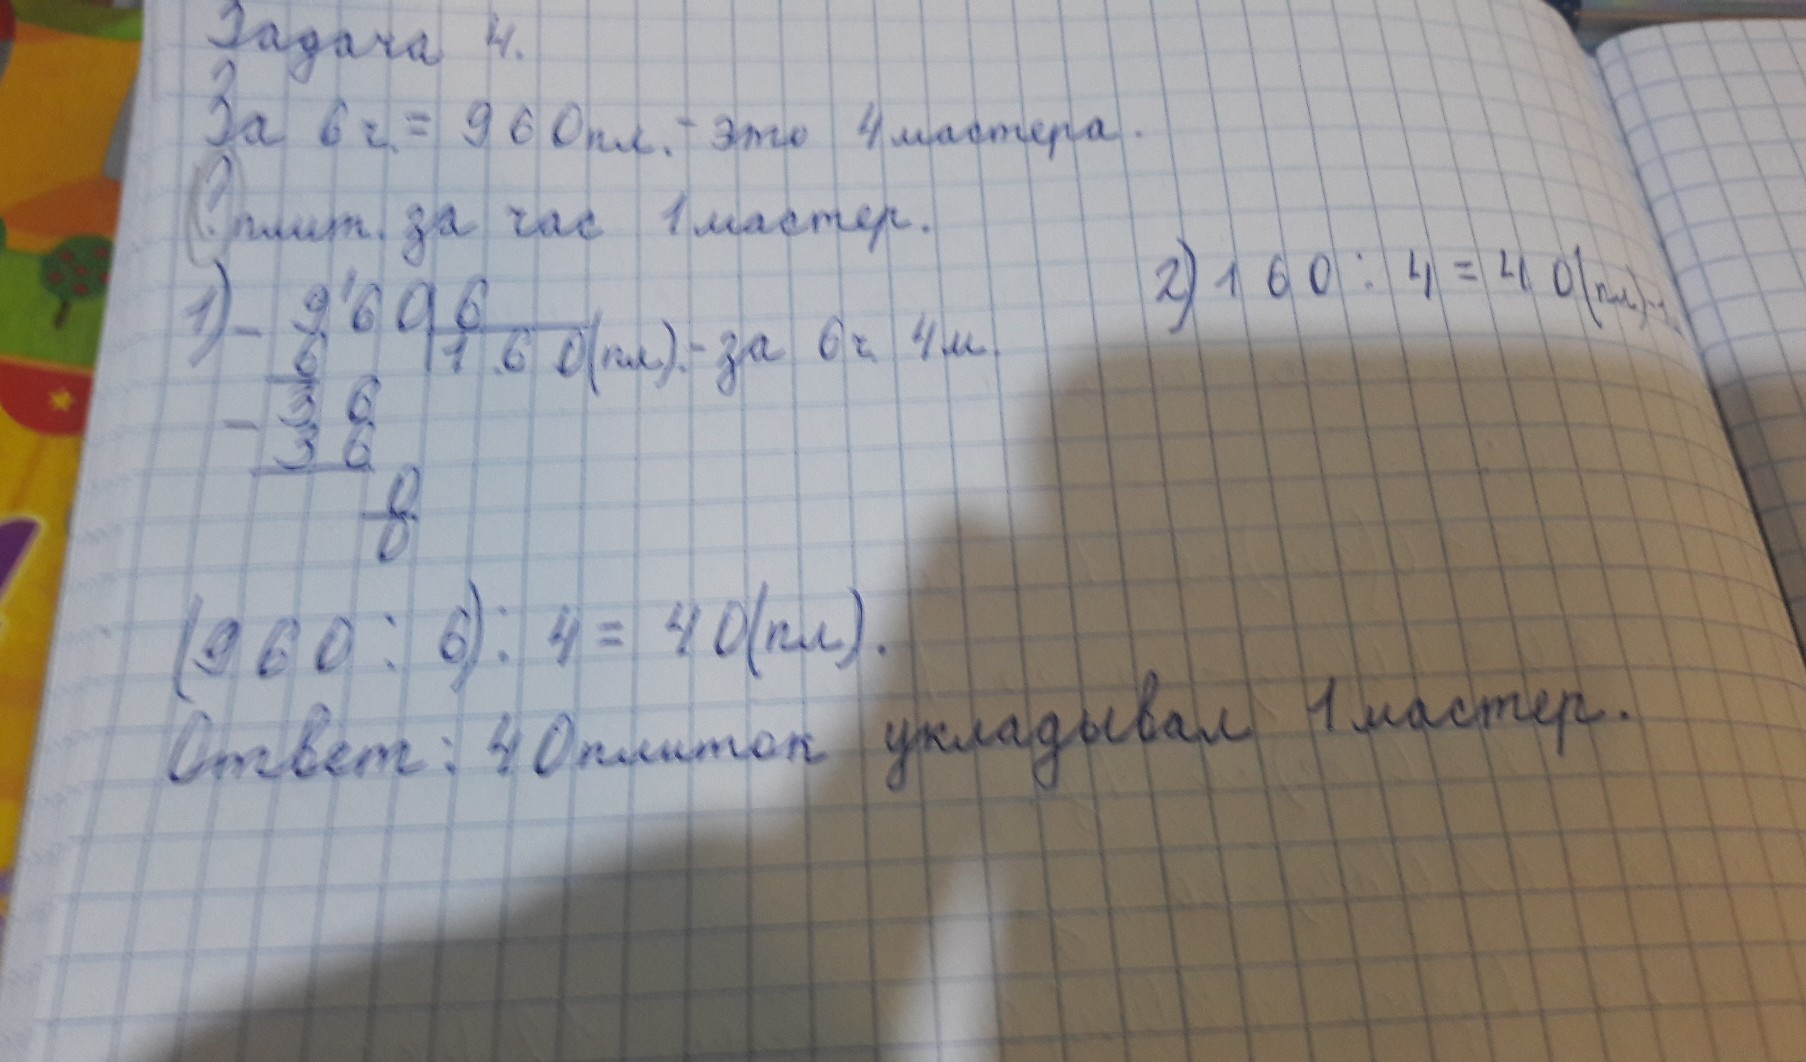 Задача 4.
За 6 ч. = 960 пл. - это 4 мастера.
? плит. за час 1 мастер.
1) - 960 | 6
6 160 (пл). - за 6 ч. 4 м.
- 36
36
0
0
2) 160 : 4 = 40 (пл) -
(960 : 6) : 4 = 40 (пл).
Ответ: 40 плиток укладывал 1 мастер.